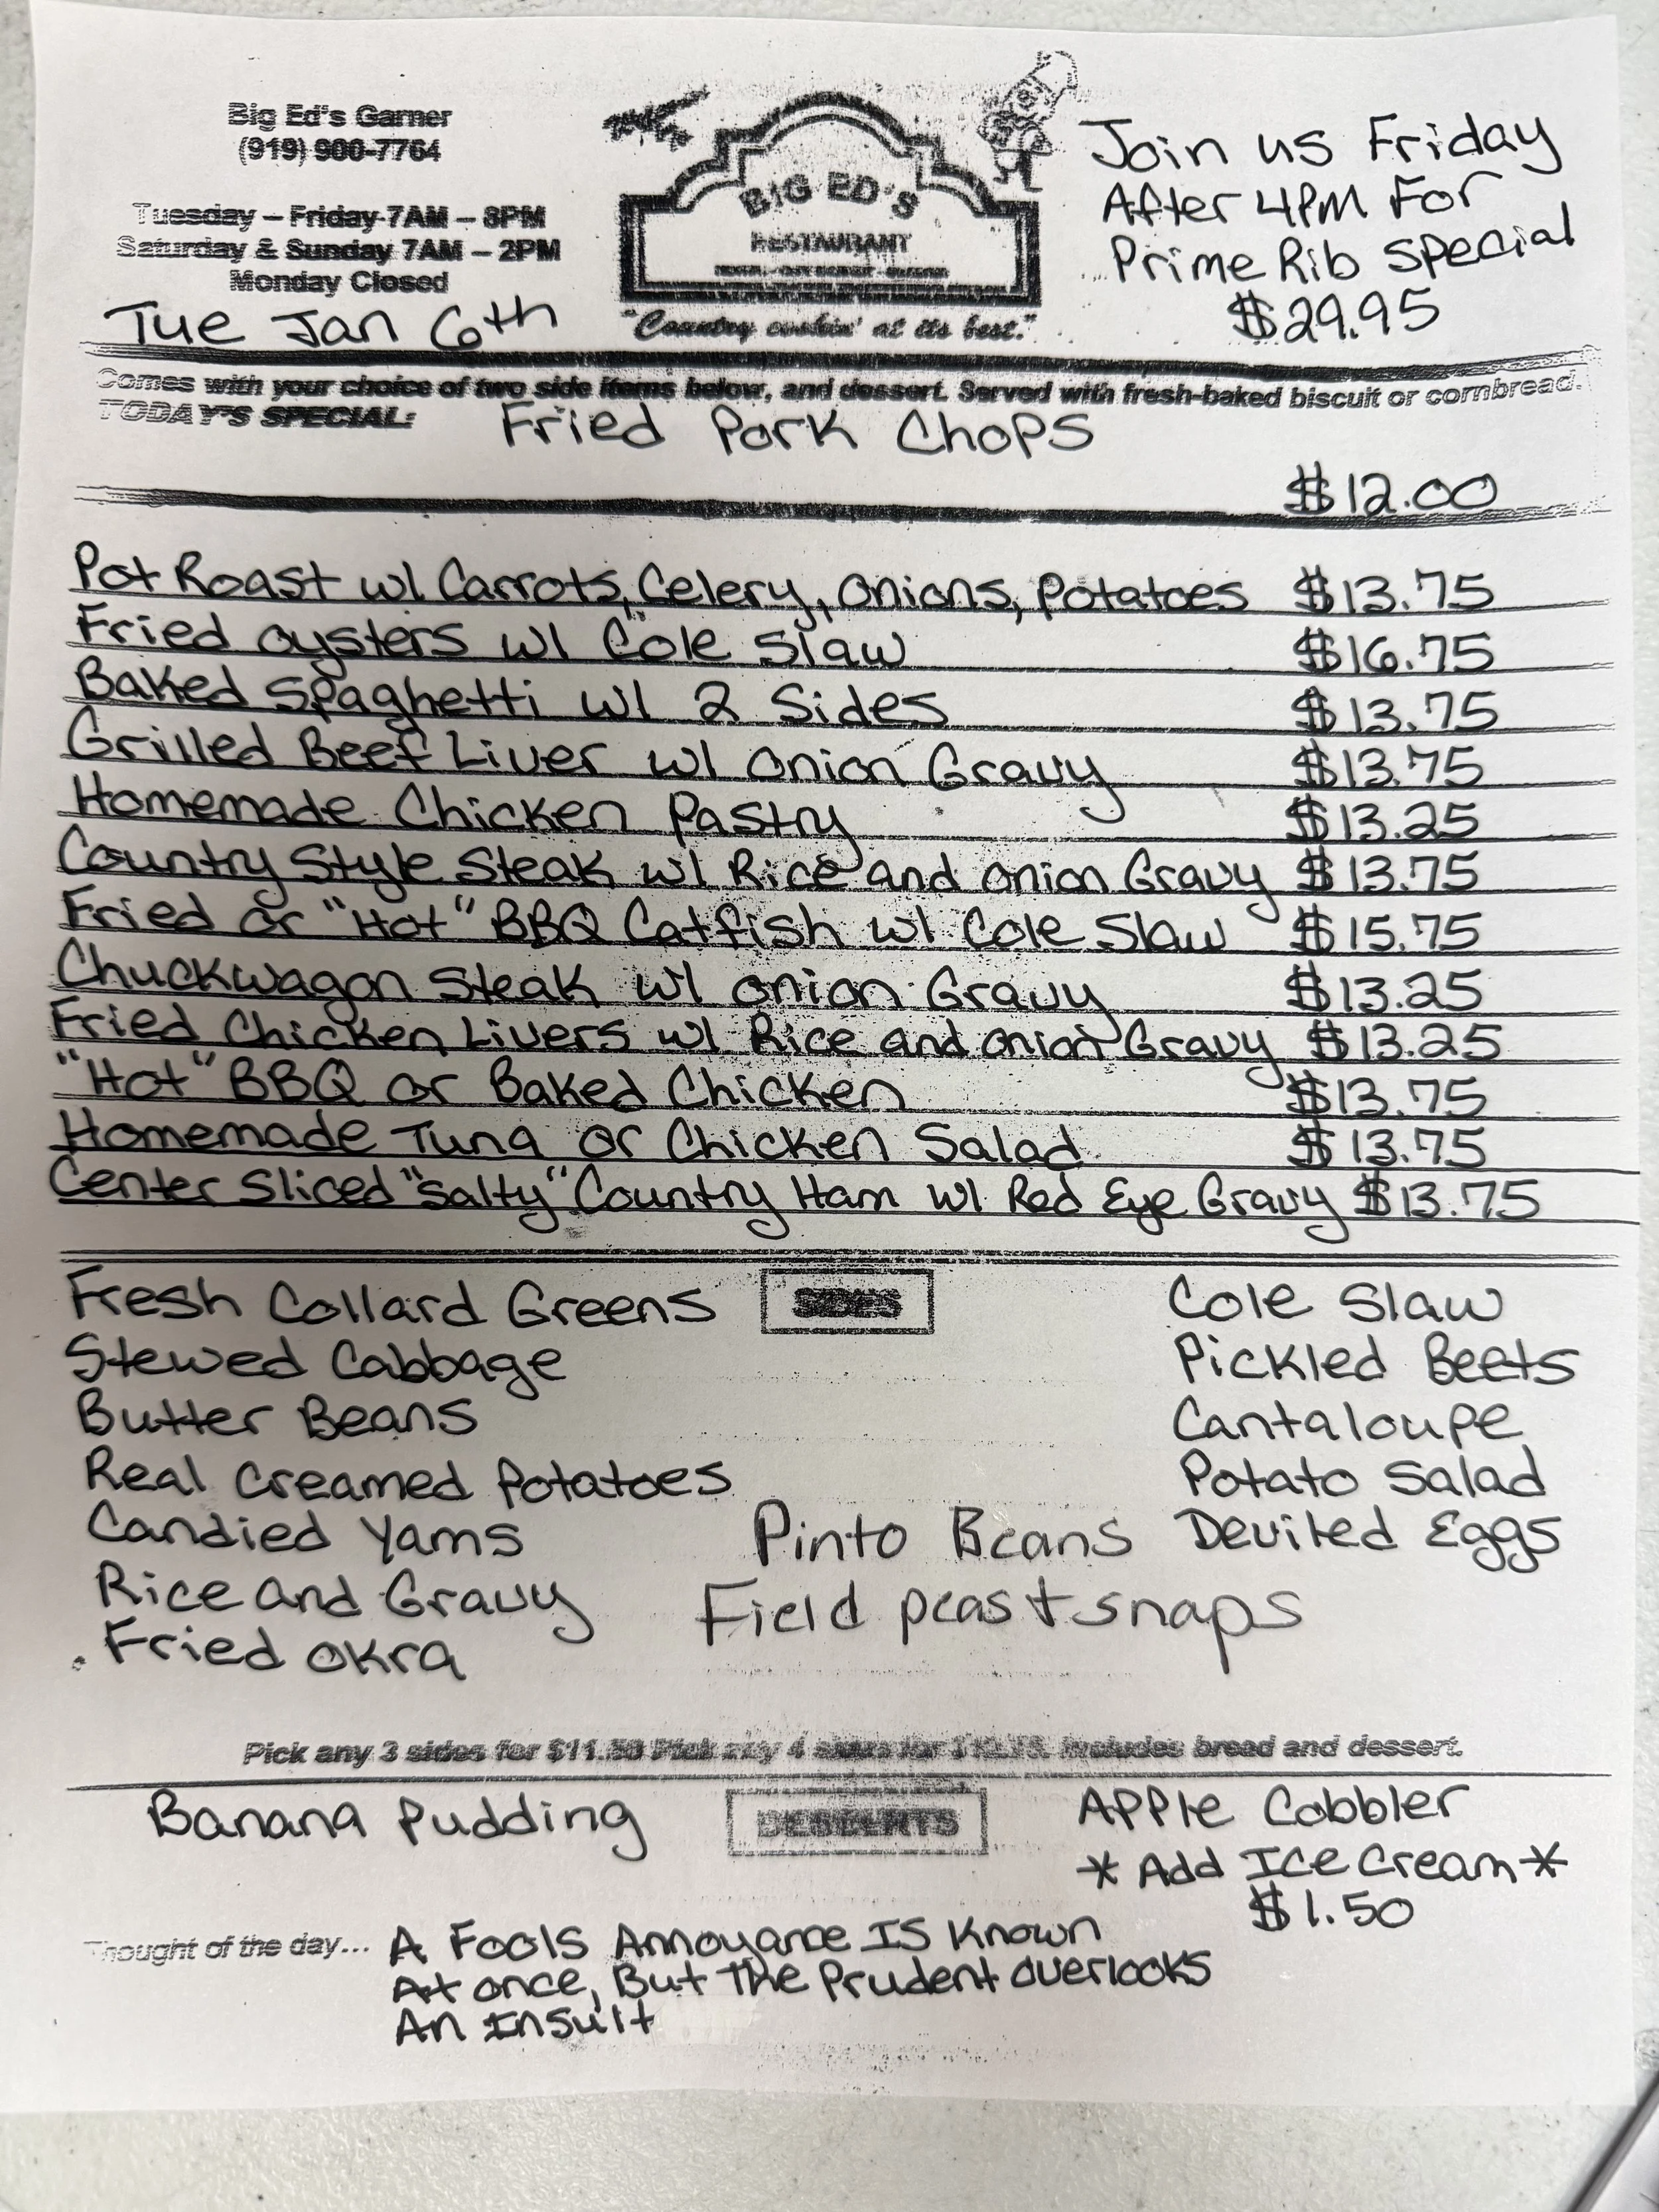 Big Ed's Garner
(919) 900-7764
Tuesday – Friday 7AM – 8PM
Saturday & Sunday 7AM – 2PM
Monday Closed
Tue Jan 6th
BIG ED'S
RESTAURANT
"Country cookin' at its best."
Join us Friday
After 4PM For
Prime Rib Special
$29.95
Comes with your choice of two side items below, and dessert. Served with fresh-baked biscuit or cornbread.
TODAY'S SPECIAL: Fried Pork Chops
$12.00
Pot Roast w/ Carrots, Celery, Onions, Potatoes $13.75
Fried Oysters w/ Cole Slaw $16.75
Baked Spaghetti w/ 2 Sides $13.75
Grilled Beef Liver w/ Onion Gravy $13.75
Homemade Chicken Pastry $13.25
Country Style Steak w/ Rice and Onion Gravy $13.75
Fried or "Hot" BBQ Catfish w/ Cole Slaw $15.75
Chuckwagon Steak w/ Onion Gravy $13.25
Fried Chicken Livers w/ Rice and Onion Gravy $13.25
"Hot" BBQ or Baked Chicken $13.75
Homemade Tuna or Chicken Salad $13.75
Center Sliced "Salty" Country Ham w/ Red Eye Gravy $13.75
SIDES
Fresh Collard Greens
Stewed Cabbage
Butter Beans
Real Creamed Potatoes
Candied Yams
Rice and Gravy
Fried Okra
Pinto Beans
Field peas + snaps
Cole Slaw
Pickled Beets
Cantaloupe
Potato Salad
Deviled Eggs
Pick any 3 sides for $11.50 Pick any 4 sides for includes bread and dessert.
DESSERTS
Banana Pudding
Apple Cobbler
* Add Ice Cream *
$1.50
Thought of the day... A Fools Annoyance Is Known
At once, But The Prudent overlooks
An Insult